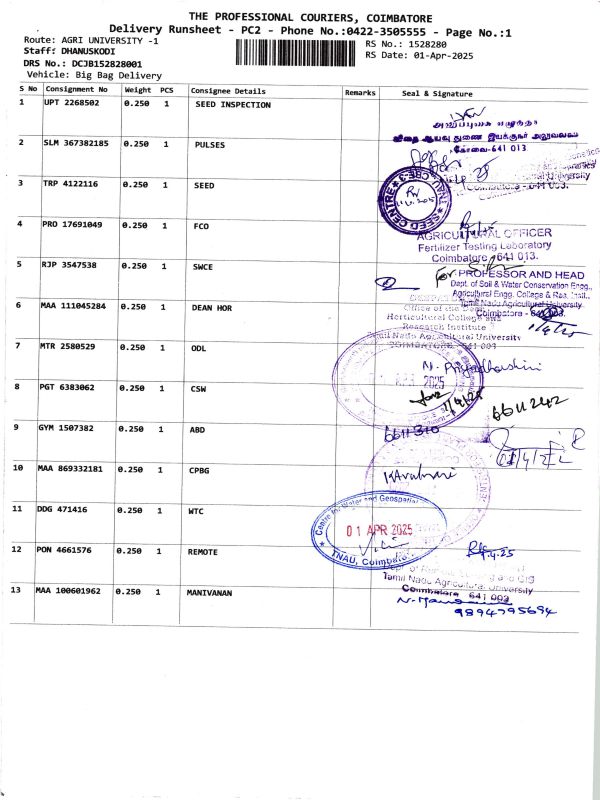 THE PROFESSIONAL COURIERS, COIMBATORE
Delivery Runsheet - PC2 - Phone No.:0422-3505555 - Page No.:1
Route: AGRI UNIVERSITY -1
RS No.: 1528280
Staff: DHANUSKODI
RS Date: 01-Apr-2025
DRS No.: DCJB152828001
Vehicle: Big Bag Delivery
S No Consignment No Weight PCS Consignee Details Remarks Seal & Signature
1 UPT 2268502 0.250 1 SEED INSPECTION
விதை ஆய்வு துணை இயக்குநர் அலுவலகம்
கோவை-641 013.
2 SLM 367382185 0.250 1 PULSES
3 TRP 4122116 0.250 1 SEED
SEED CENTRE
TNAU, CBE-3
Coimbatore - 641 003.
4 PRO 17691049 0.250 1 FCO
AGRICULTURAL OFFICER
Fertilizer Testing Laboratory
Coimbatore 641 013.
5 RJP 3547538 0.250 1 SWCE
For PROFESSOR AND HEAD
Dept. of Soil & Water Conservation Engg.,
Agricultural Engg. College & Res. Insti.,
Tamil Nadu Agricultural University
Coimbatore - 641 003.
6 MAA 111045284 0.250 1 DEAN HOR
Office of the Dean
Horticultural College and
Research Institute
Tamil Nadu Agricultural University
COIMBATORE. 641 003
7 MTR 2580529 0.250 1 ODL
N. Priyadharshini
2025
8 PGT 6383062 0.250 1 CSW
6611242
9 GYM 1507382 0.250 1 ABD
6611310
10 MAA 869332181 0.250 1 CPBG
11 DDG 471416 0.250 1 WTC
Centre for Water and Geospatial
01 APR 2025
TNAU, Coimbatore
12 PON 4661576 0.250 1 REMOTE
Tamil Nadu Agricultural University
Coimbatore 641 003
13 MAA 100601962 0.250 1 MANIVANAN
9894795694